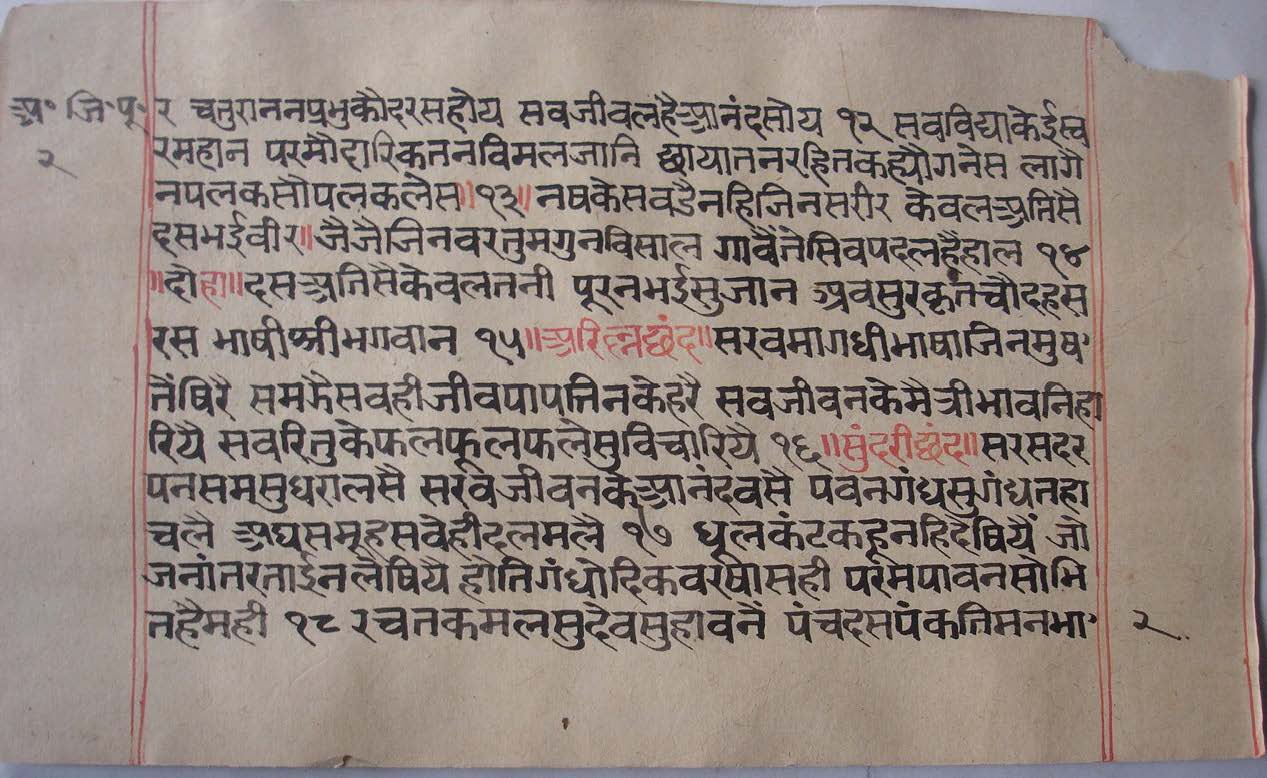 अ॰ जि॰ पू॰ र चतुराननप्रभुकौदरसहोय सवजीवलहैआनंदसोय १२ सवविद्याकेईस्व
२ रमहान परमौदारिकतनविमलजानि छायातनरहितकह्यौगनेस लागै
नपलकसौपलकलेस॥१३॥ नषकेसवडैनहिजिनसरीर केवलअतिसै
दसभईवीर॥ जैजैजिनवरतुमगुनविसाल गावैंतेसिवपदलहैहाल १४
॥दोहा॥ दसअतिसैकेवलतनी पूरनभईसुजान अवसुरकृतचौदहस
रस भाषीश्रीभगवान १५॥अरिल्लछंद॥ सरवमागधीभाषाजिनमुष॰
तैंषिरै समझैसवहीजीवपापतिनकेहरै सवजीवनकेमैत्रीभावनिहा
रियै सवरितुकेफलफूलफलेसुविचारियै १६॥सुंदरीछंद॥ सरसदर
पनसमसुधरालसै सर्वजीवनकेआनंदवसै पवनगंधसुगंधतहा
चलै अघसमूहसवेहीदलमलै १७ धूलकंटकहूनहिदेषियैं जो
जनांतरताईनलेषियै होतिगंधोदिकवरषासही पर्रमपावनसोभि
तहैमही १८ रचतकमलसुदेवसुहावनें पंचदसपंकतिमनभा॰ २